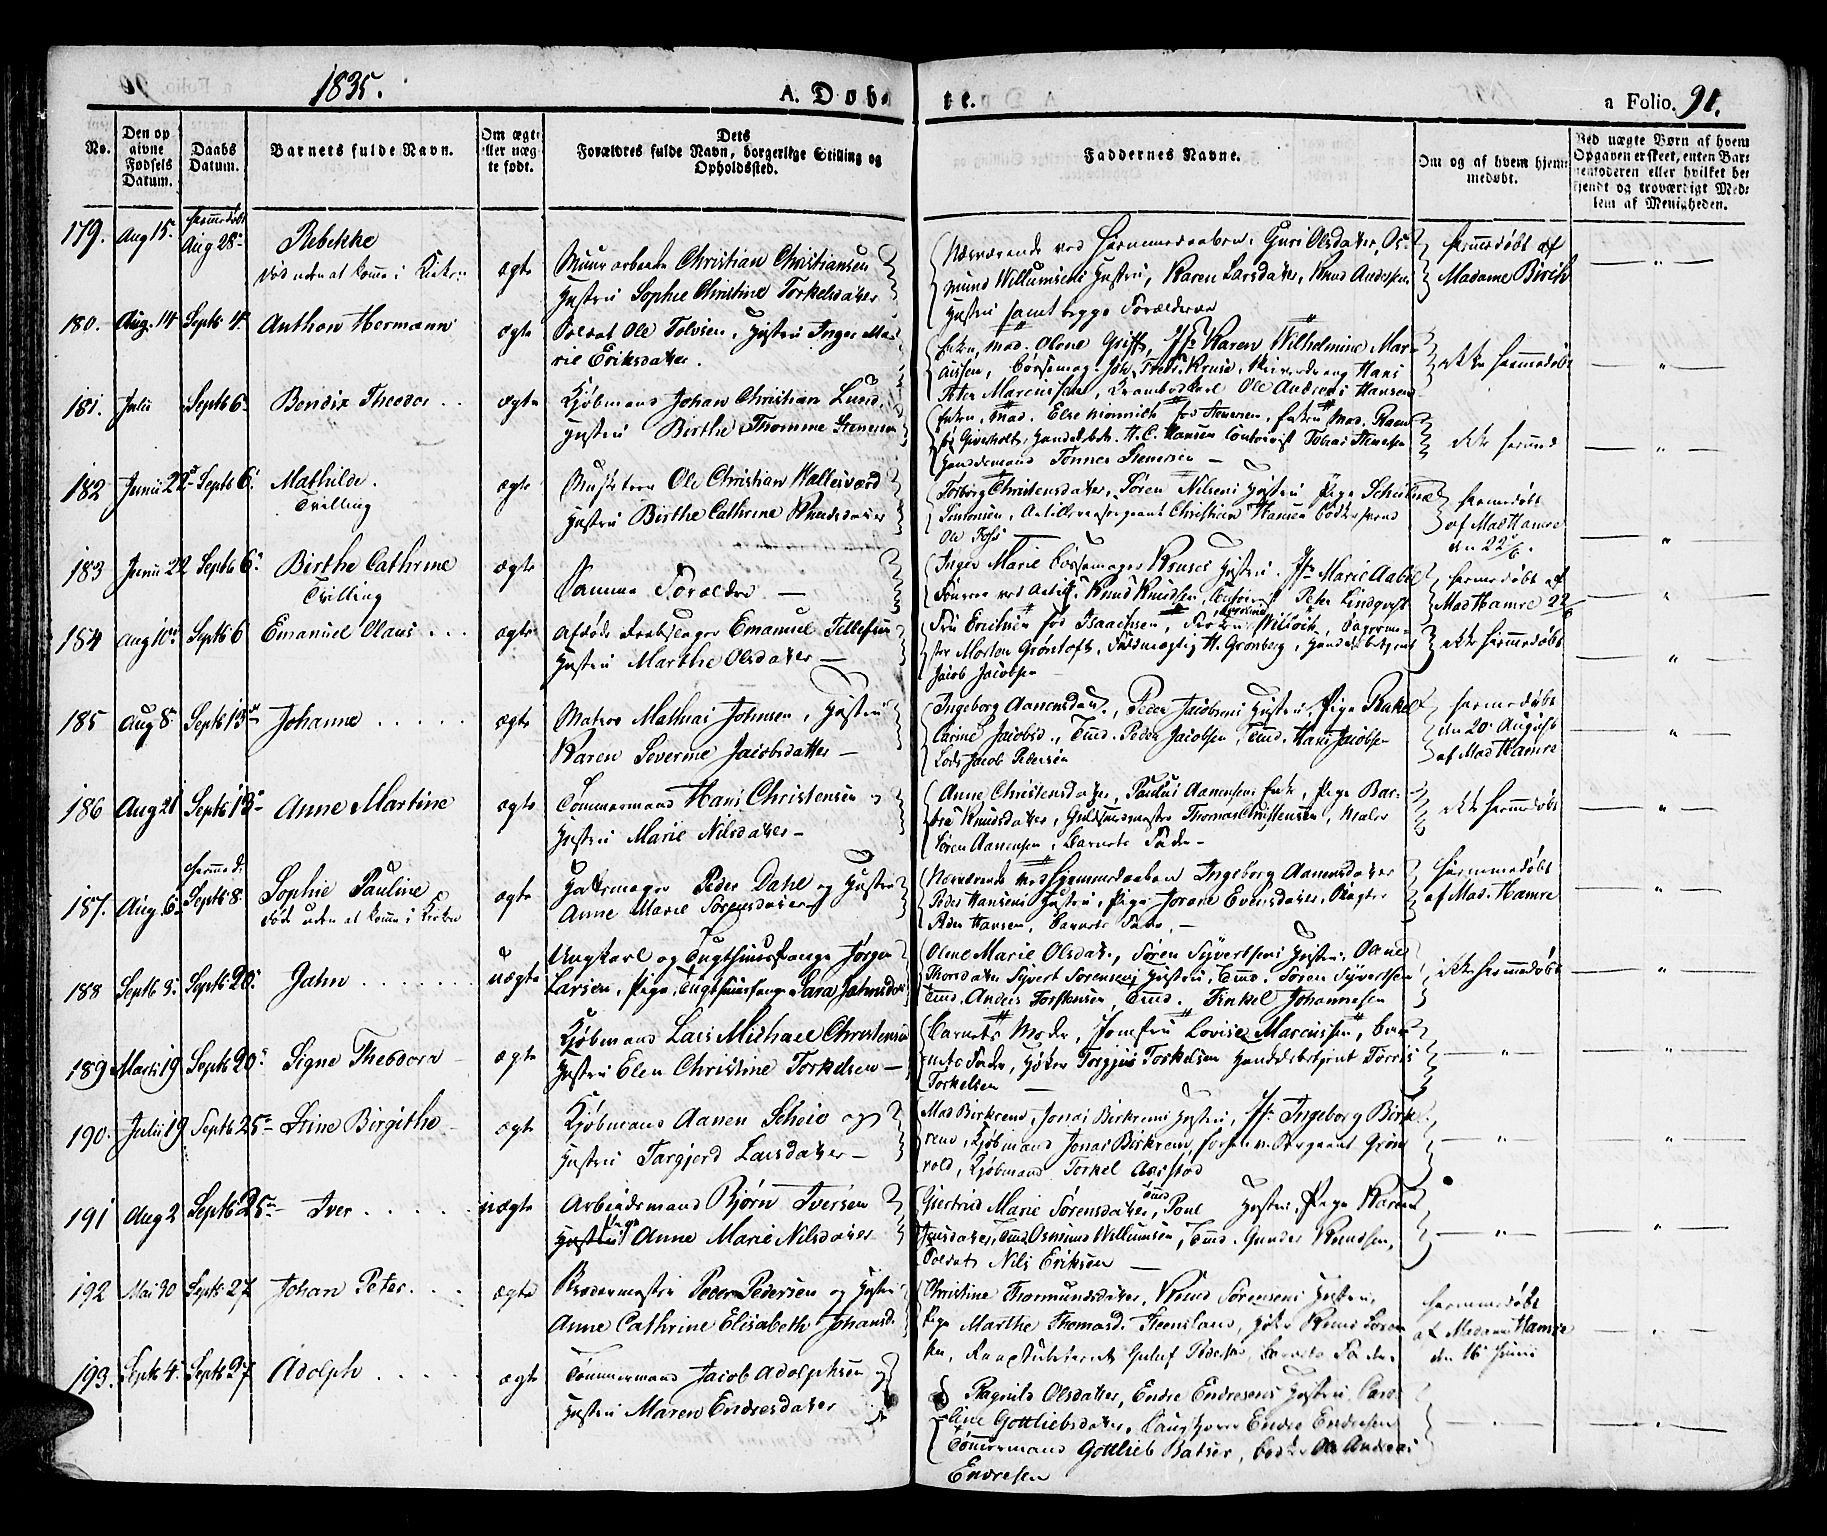 1835.
A. Døbte.
a Folio. 91.
No.
Den opgivne Fødsels Datum.
Daabs Datum.
Barnets fulde Navn.
Om ægte eller uægte født.
Dets Forældres fulde Navn, borgerlige Stilling og Opholdssted.
Faddernes Navne.
Om og af hvem hjemmedøbt.
Ved uægte Børn af hvem Opgaven er skeet, enten Barnefaderen eller hvilket bekjendt og troværdigt Medlem af Menigheden.
179. Aug 15. hjemmedøbt Aug 28 Rebekke
død uden at komme i Kirken
ægte Christian Christiansen
Hustru Sophie Christine Torkelsdatter
Nærværende ved Hjemmedaaben, Guri Olsdatter, Osmund Willumsens Hustru, Karen Larsdatter, Knud Andersens
Hustru samt begge Forældrene
hjemmedøbt af
Madame Birch
180. Aug. 14 Septb 4. Anthon Hermann ægte Soldat Ole Tolvsen, Hustru Inger Marie Eriksdatter.
Enken, Mad. Olene Griff, Jfr Karen Wilhelmine Marcussen, Børsemag. Joh. Fred. Kruse, Hans
Peter Marcussen, Ole Andreas Hansen
ikke hjemmedøbt
181. Julii Septb 6 Bendix Theodor ægte Kjøbmand Johan Christian Lund,
Hustru Birthe Thomme Stenersen
Mad. Else fød Stenersen, Enken Mad.
Handelsbetj. H. C. Hansen Tobias Stenersen
Tønnes Stenersen
ikke hjemmed
182 Junii 22 Septb 6 Mathilde.
Tvilling
ægte Ole Christian Kallesværd
Hustru Birthe Cathrine Knudsdatter
Torborg Christensdatter, Søren Nilsens Hustru, Pige
Christian Hansen
Ole Foss
hjemmedøbt
af Mad Hamre
den 22/6.
183 Junii 22 Septb 6 Birthe Cathrine
Tvilling
ægte Samme Forældre
Inger Marie Børsemager Kruses Hustru, Jfr Marie Aabel
Knud Knudsen, Peter Lindqvist
hjemmedøbt af
Mad Hamre 22/6
184 Aug 10 Septb 6 Emanuel Olaus ægte Afdøde Emanuel Tellefsen
Hustru Marthe Olsdatter
Fru Erichsen fød Isaachsen, Frøken Wilsvik,
Morten Grøntoft, Fuldmægtig H. Grønberg, Handelsbetjent
Jacob Jacobsen
ikke hjemmedøbt
185 Aug 8 Septb 13 Johanne ægte Matros Mathias Johnsen, Hustru
Karen Severine Jacobsdatter
Ingeborg Aanensdatt., Peder Jacobsens Hustru, Pige Rakel
Carine Jacobsd., Tmd. Peder Jacobsen, Tmd. Hans Jacobsen
Lods Jacob Pedersen
hjemmedøbt
den 20 August
af Mad Hamre
186 Aug 21 Septb 13 Anne Martine ægte Tømmermand Hans Christensen og
Hustru Marie Nilsdatter
Anne Christensdatter, Paulus Aanensens Enke, Pige Barbra Knudsdatter, Guldsmedmester Thomas Christensen, Maler
Søren Aanensen, Barnets Fader
ikke hjemmedøbt
187. Aug. 6 hjemmed. Septb 8 Sophie Pauline
død uden at komme i Kirken
ægte Hattemager Peder Dahl og Hustru
Anne Marie Sørensdatter
Nærværende ved Hjemmedaaben Ingeborg Aanensdatter
Peder Hansens Hustru, Pige Jorane Evensdatter,
Peder Hansen, Barnets Fader
hjemmedøbt
af Mad. Hamre
188 Septb 3. Septb 20 Jahn uægte Ungkarl og Tugthuusfange Jørgen
Larsen, Pige, Tugthuusfange Sara Jahnsdat
Olene Marie Olsdat., Søren Syvertsens Hustru, Aasne
Thorsdatter Syvert Sørensens Hustru, Tmd. Søren Syvertsen
Tmd. Anders Torstensen, Tmd. Finkel Johannesen
ikke hjemmedøbt
189 Marts 19 Septb 20 Signe Theodora ægte Kjøbmand Lars Michael Christensen
Hustru Elen Christine Torkelsen
Barnets Moder, Jomfru Lovise Marcussen, Barnets Fader, Høker Torgius Torkelsen Handelsbetjent Torris
Torkelsen
190. Julii 19 Septb 25 Stine Birgithe ægte Kjøbmand Aanen Scheie og
Hustru Targjerd Larsdatter
Mad Birkrem, Jonas Birkrems Hustru, Jfr Ingeborg Birkrem, Kjøbmand Jonas Birkrem,
Kjøbmand Torkel Aarstad
191 Aug 2 Septb 25 Iver uægte Arbeidsmand Bjørn Iversen
Pige Anne Marie Nilsdatter
Giertrud Marie Sørensdatter, Tmd Poul Hustru, Pige Karen
Jensdatter, Tmd Osmund Willumsen, Tmd. Gunder Knudsen,
Soldat Nils Eriksen
192 Mai 30 Septb 27 Johan Peter ægte Peder Pedersen og Hustru
Anne Cathrine Elisabeth Johansd.
Christine Thormundsdatter, Knud Sørensens Hustru,
Pige Marthe Thomasd. Steensland, Høker Knud Sørensen, Guluf Pedersen, Barnets Fader
hjemmedøbt
af Madam Hamre
den 16 Junii
193. Septb 4 Septb 27 Adolph ægte Tømmermand Jacob Adolphsen og
Hustru Maren Endresdatter
Ragnild Olsdatter, Endre Endresens Hustru, Caroline Gottliebsdatter, Endre Endresen
Tømmermand Gottlieb Batser, Bødker Ole Andreas
Endresen